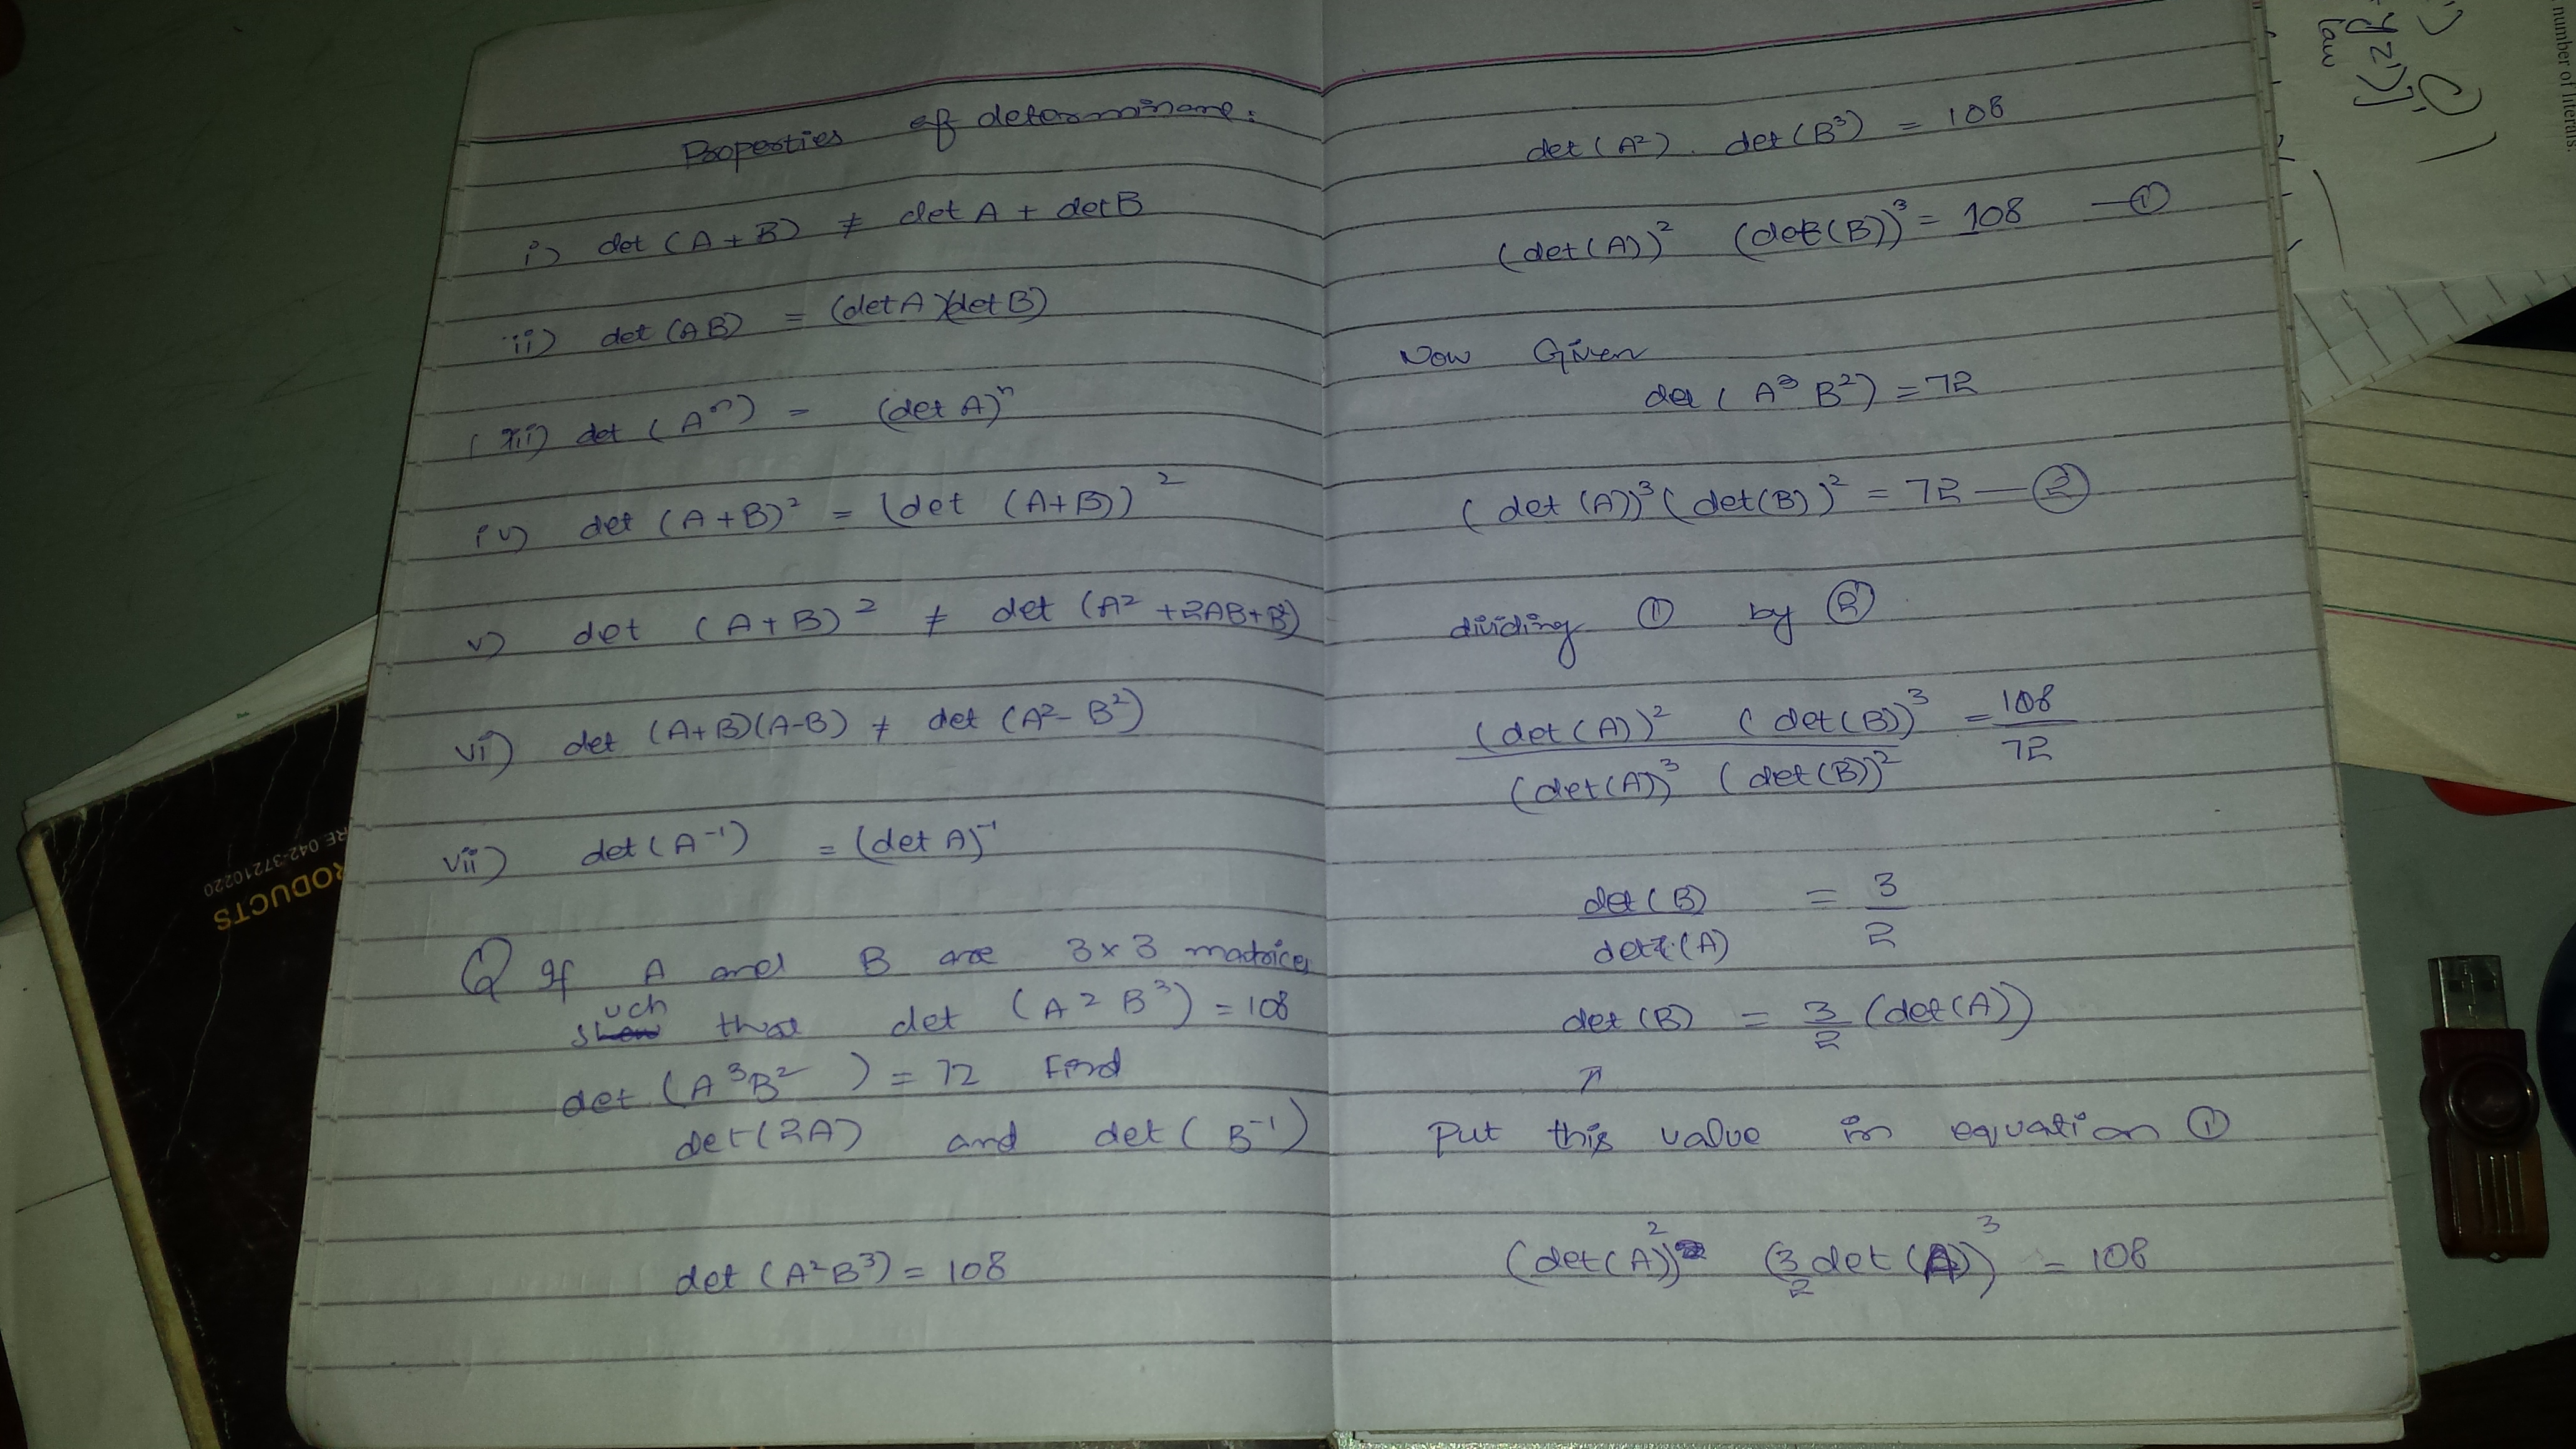 Properties of determinant:
i) det (A + B) ≠ det A + det B
ii) det (AB) = (det A)(det B)
(iii) det (Aⁿ) = (det A)ⁿ
iv) det (A+B)² = (det (A+B))²
v) det (A+B)² ≠ det (A² +2AB+B²)
vi) det (A+B)(A-B) ≠ det (A²- B²)
vii) det (A⁻¹) = (det A)⁻¹
Q If A and B are 3×3 matrices
such that det (A² B³) = 108
det (A³B²) = 72 Find
det (2A) and det (B⁻¹)
det (A²B³) = 108
det (A²) . det (B³) = 108
(det(A))² (det(B))³ = 108 —①
Now Given
det (A³ B²) = 72
(det (A))³ (det(B))² = 72 —②
dividing ① by ②
(det(A))² (det(B))³ = 108
(det(A))³ (det(B))² 72
det (B) = 3
det (A) 2
det (B) = 3/2 (det(A))
↗
Put this value in equation ①
(det(A))² (3/2 det (A))³ = 108
number of literals.
RODUCTS
RE.042-37210220
law